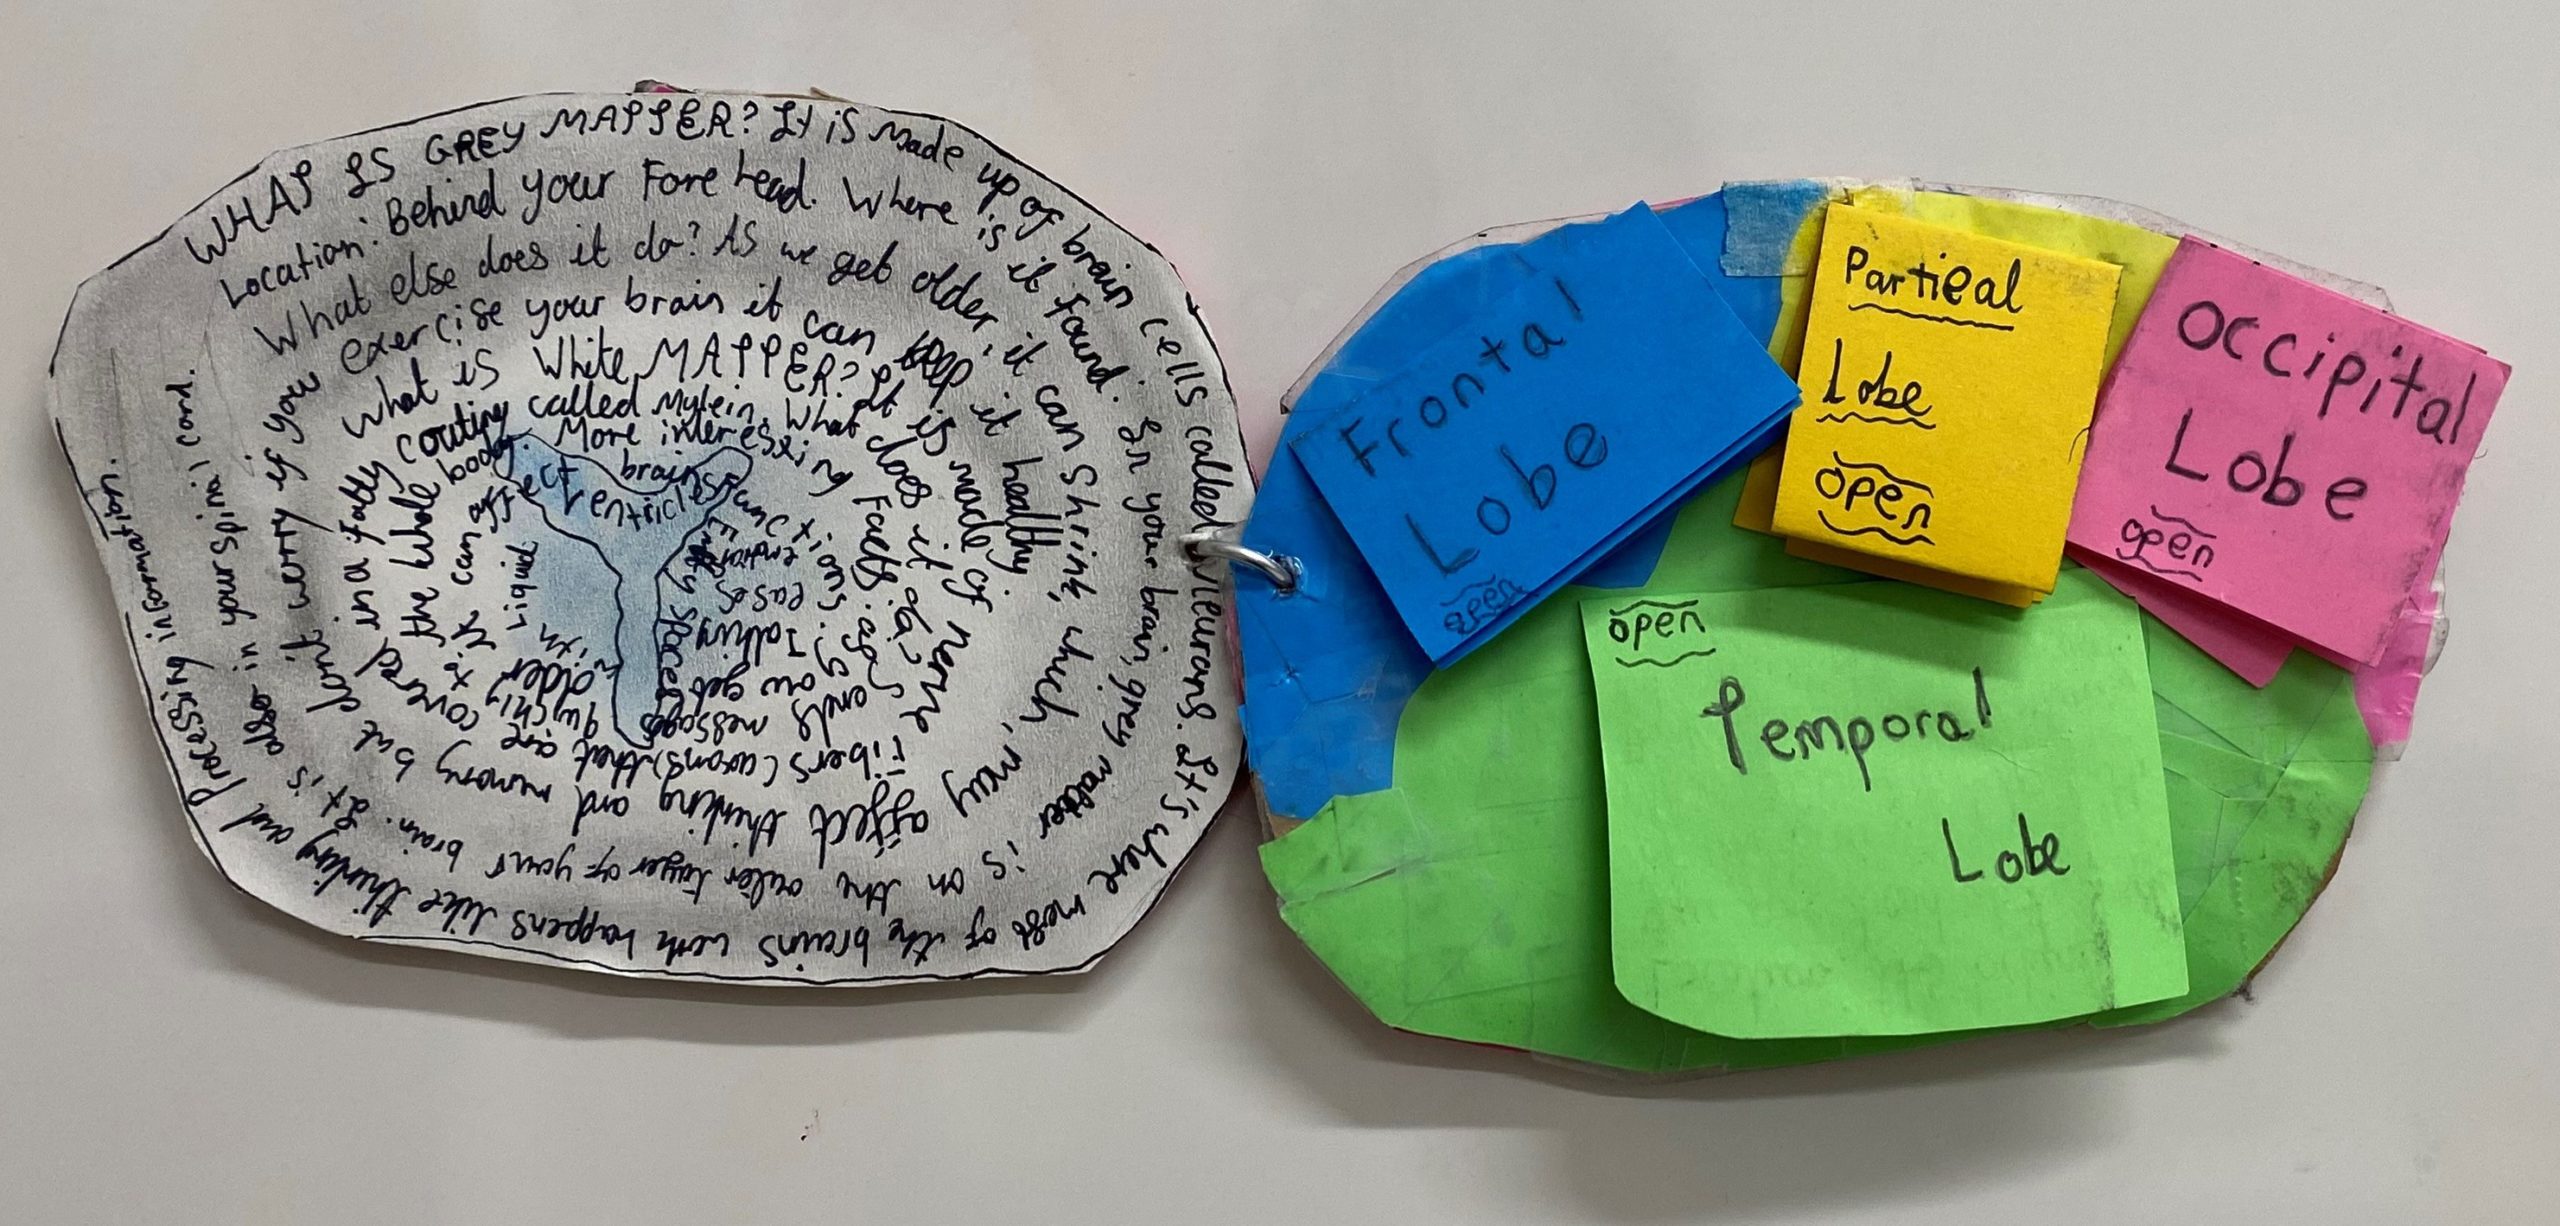 WHAT IS GREY MATTER? It is made up of brain cells called Neurons. It's where most of the brains work happens like thinking and Processing information.
Location: Behind your Fore head. Where is it found. In your brain, grey matter is on the outer layer of your brain. It is also in your spinal cord.
What else does it do? As we get older, it can shrink, which may affect thinking and memory but dont worry if you
exercise your brain it can keep it healthy.
What is White MATTER? It is made of nerve fibers (axons) that are covered in a fatty
couting called Mylein. What does it do? sends messages quickly to the whole body.
More interesting facts. as you get older it can affect brain functions.
ventricles
spaces
liquid
Frontal
Lobe
open
Partieal
Lobe
open
Occipital
Lobe
open
open
Temporal
Lobe